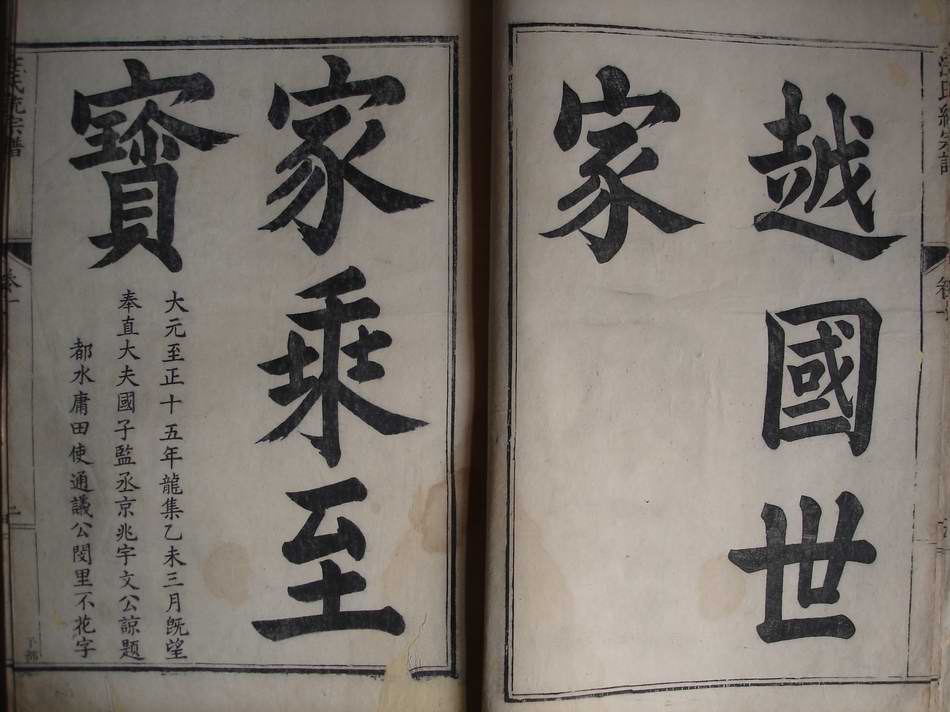 越國世
家
家乘至
寳
大元至正十五年龍集乙未三月旣望
奉直大夫國子監丞京兆宇文公諒題
都水庸田使通議公閔里不花字
汪氏統宗譜
卷一
二